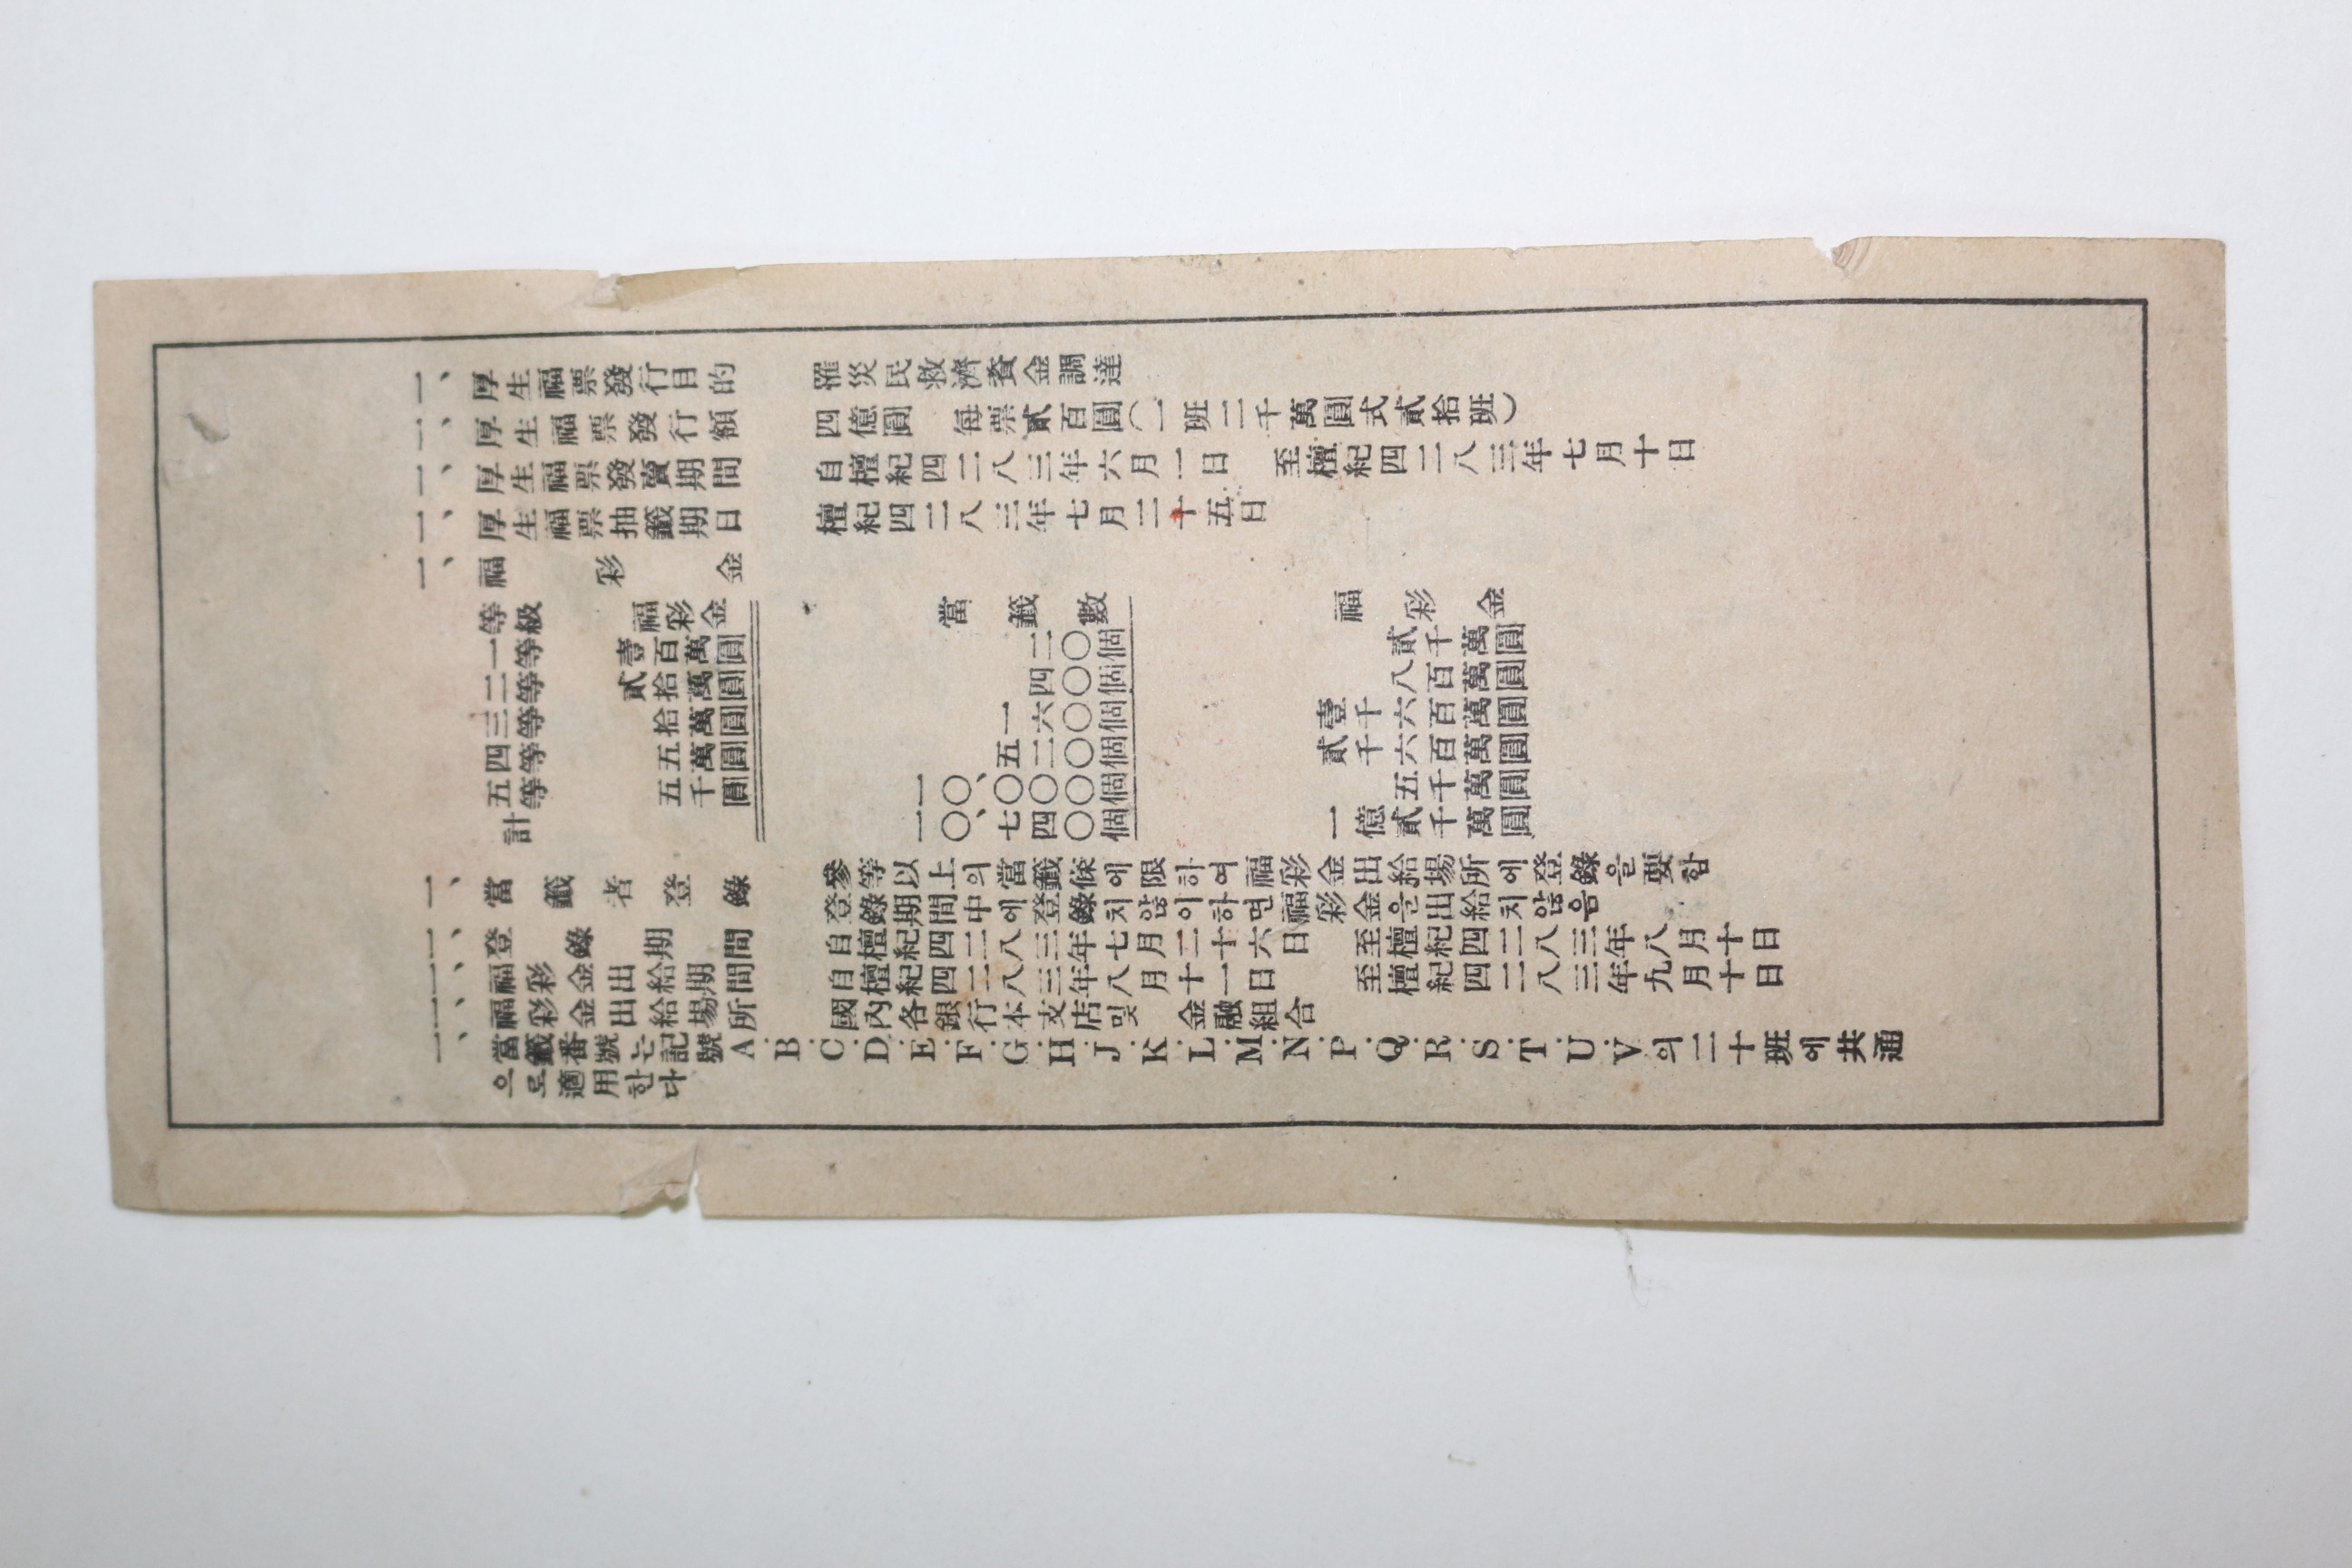 一、厚生福票發行目的 罹災民救濟資金調達
一、厚生福票發行額 四億圓 每票貳百圓(一班二千萬圓式貳拾班)
一、厚生福票發賣期間 自檀紀四二八三年六月一日 至檀紀四二八三年七月十日
一、厚生福票抽籤期日 檀紀四二八三年七月二十五日
一、福彩金
等級 福彩金 當籤數 福彩金
一等 壹百萬圓 二〇個 貳千萬圓
二等 貳拾萬圓 四〇個 八百萬圓
三等 拾萬圓 一六〇個 壹千六百萬圓
四等 五萬圓 五二〇個 貳千六百萬圓
五等 五千圓 一〇、〇〇〇個 五千萬圓
計 一〇、七四〇個 一億貳千萬圓
一、當籤者登錄 參等以上의當籤條에限하여福彩金出給場所에登錄을要함
登錄期間中에登錄치않이하면福彩金을出給치않음
一、登錄期間 自檀紀四二八三年七月二十六日 至檀紀四二八三年八月十日
一、福彩金出給期間 自檀紀四二八三年八月十一日 至檀紀四二八三年九月十日
一、福彩金出給場所 國內各銀行本支店및 金融組合
一、當籤番號는記號A.B.C.D.E.F.G.H.J.K.L.M.N.P.Q.R.S.T.U.V의二十班에共通
으로適用한다